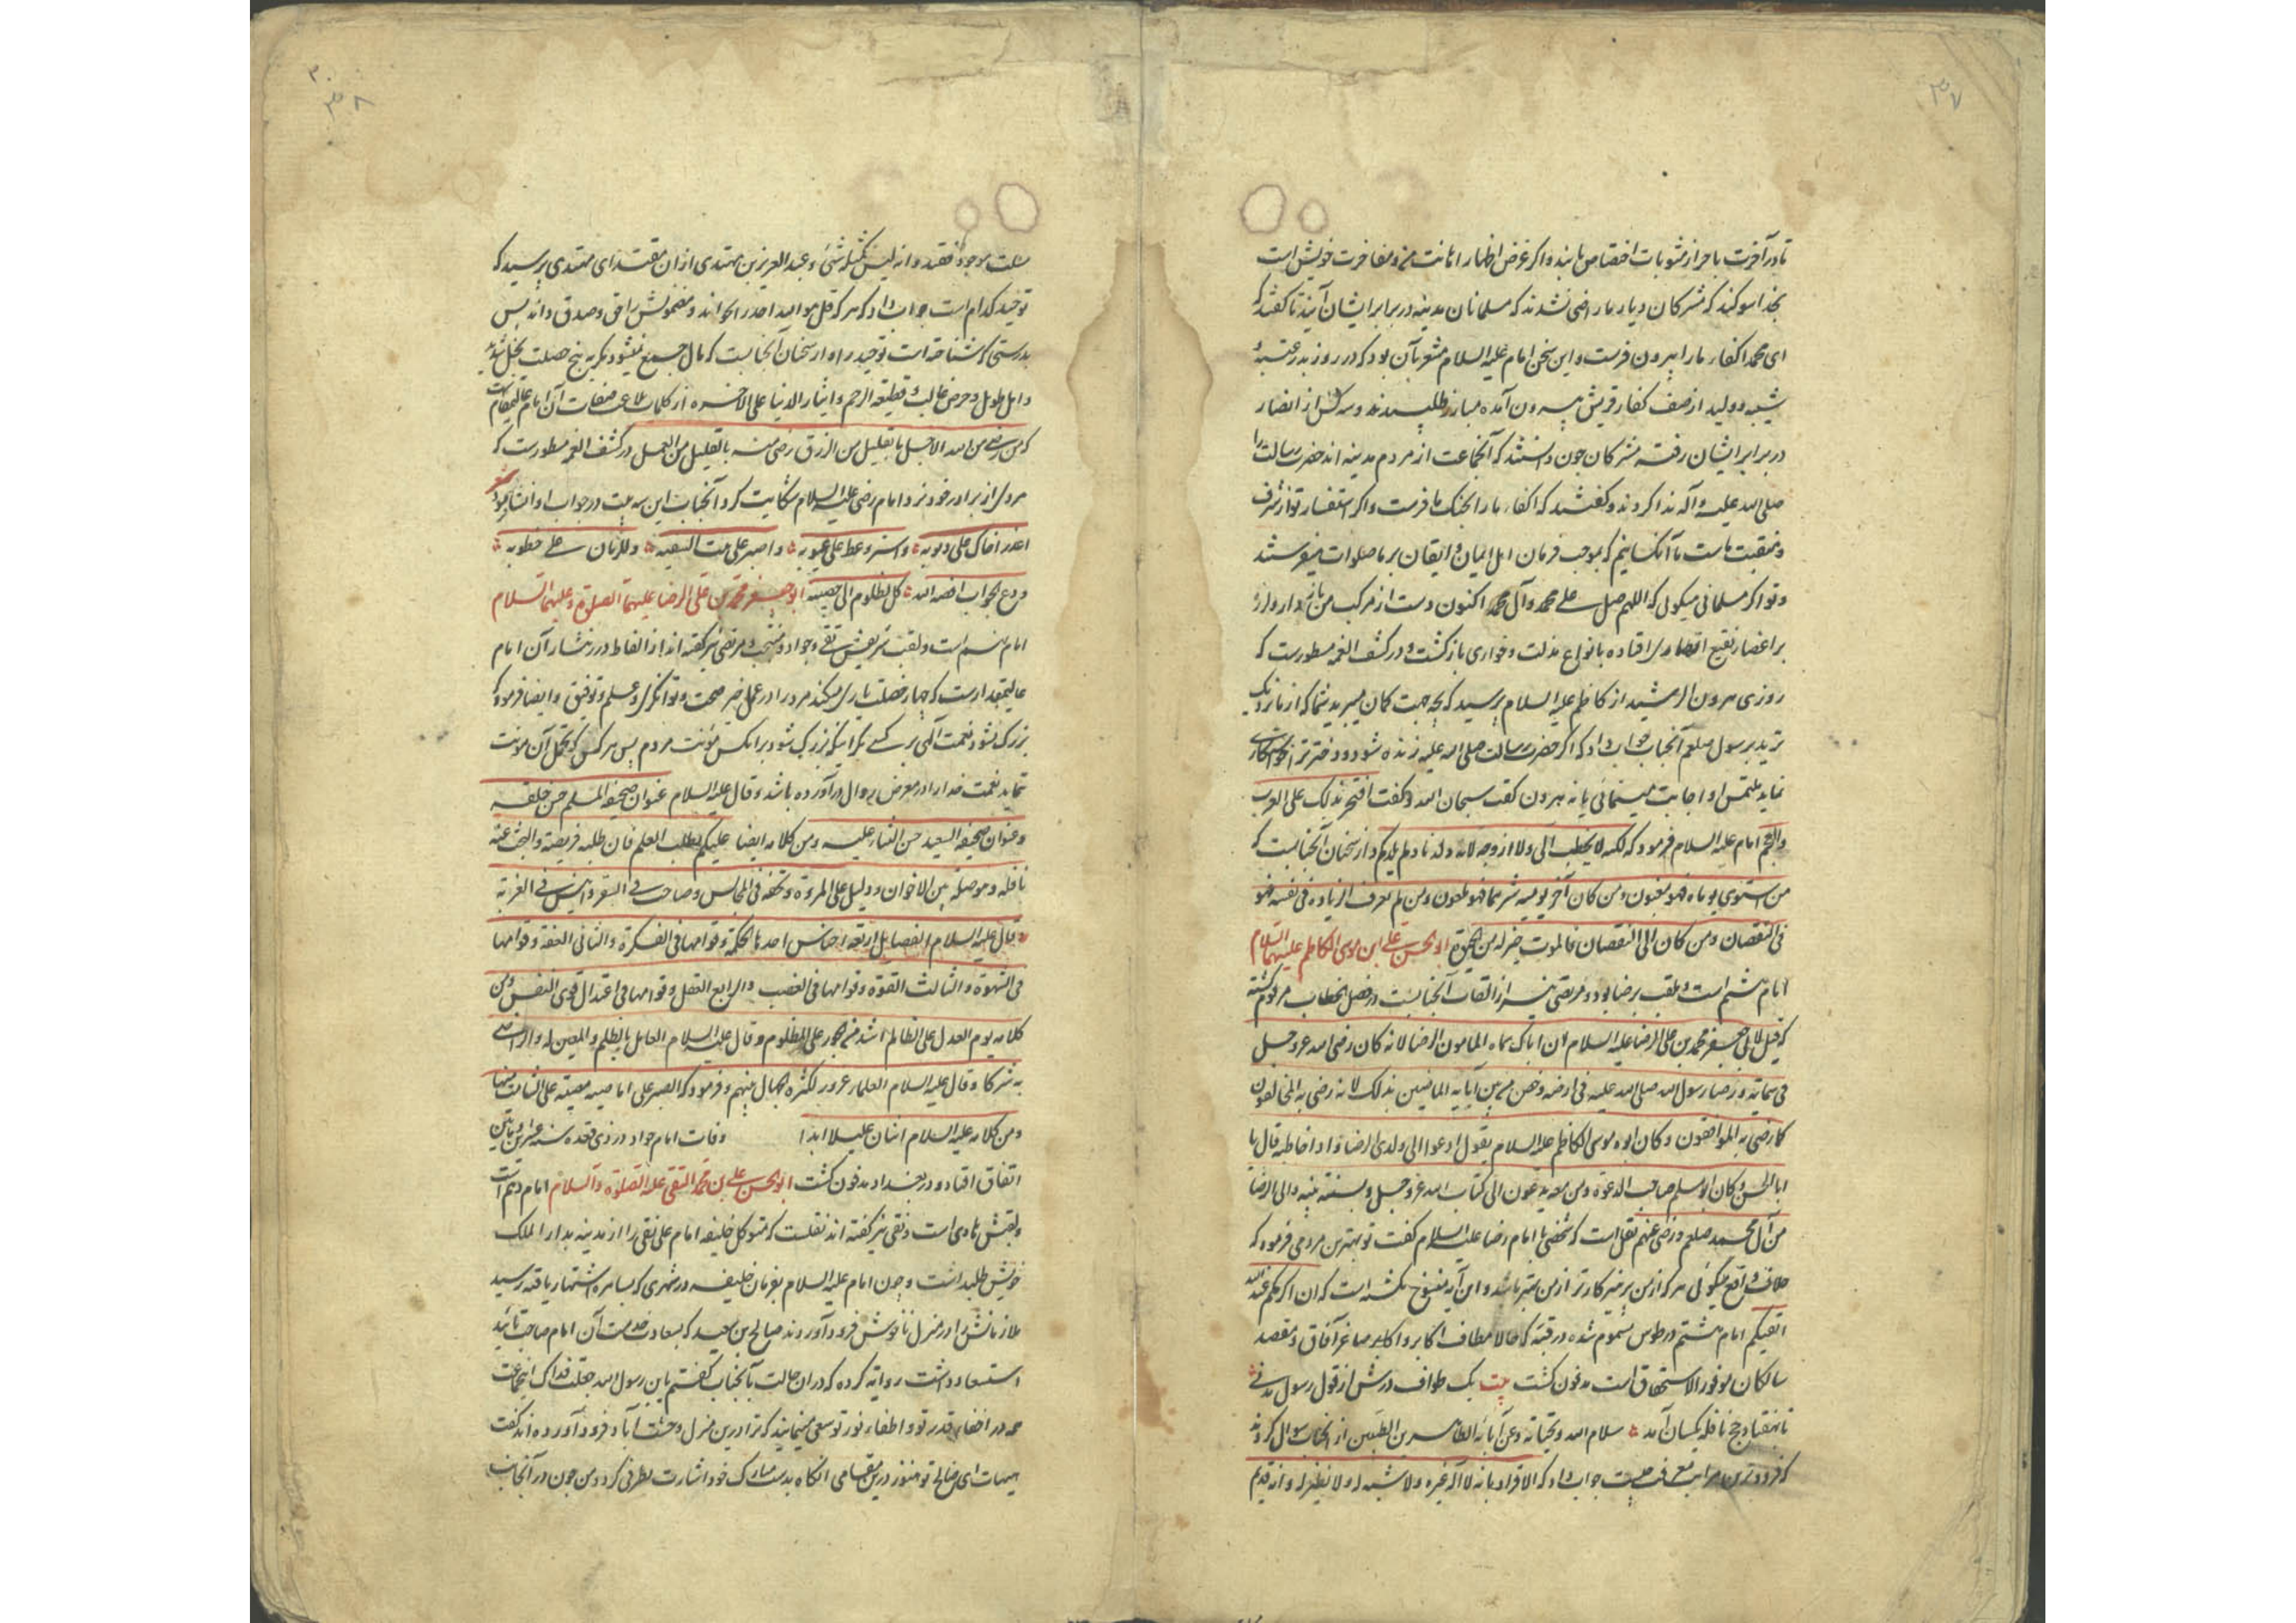 ۳۷
تا در آخرت باحراز مثوبات اختصاص یابند و اگر غرض اظهار اهانت من و مفاخرت خویش است
بخدا سوگند که مشرکان دیار ما راضی نشدند که مسلمانان مدینه در برابر ایشان آیند تا گفتند که
ای محمد اکفاء ما را بیرون فرست و این سخن امام علیه السلام مشعر بآن بود که در روز بدر عتبه و
شیبه و ولید از صف کفار قریش بیرون آمده مبارز طلبیدند و سه کس از انصار
در برابر ایشان رفته مشرکان چون دانستند که آنجماعت از مردم مدینه اند حضرت رسالت را
صلی الله علیه و آله ندا کردند و گفتند که اکفاء ما را بجنک ما فرست و اگر استفسار تو از شرف
و منقبت ماست ما آنکسانیم که بموجب فرمان اهل ایمان و ایقان بر ما صلوات میفرستند
و تو اگر مسلمانی میگوئی که اللهم صل علی محمد و آل محمد اکنون دست از مرکب من باز دار و لرزه
بر اعضاء نفیع انصاری افتاده بانواع مذلت و خواری بازگشت و در کشف الغمه مسطورست که
روزی هرون الرشید از کاظم علیه السلام پرسید که بچه جهت گمان میبرید شما که از ما نزدیک
ترید برسول صلعم آنجناب جواب داد که اگر حضرت رسالت صلی الله علیه زنده شود و دختر ترا خواستگاری
نماید ملتمس او اجابت مینمائی یا نه هرون گفت سبحان الله و گفت افتخر بذلک علی العرب
والعجم امام علیه السلام فرمود که لکنه لا یخطب الی ولا ازوجه لانه ولدنا و لم یلدکم و از سخنان آنجنابست که
من استوی یوماه فهو مغبون و من کان آخر یومیه شرهما فهو ملعون و من لم یعرف الزیادة فی نفسه فهو
فی النقصان و من کان الی النقصان فالموت خیر له من الحیوة ابو الحسن علی ابن موسی الکاظم علیهما السلام
امام هشتم است و ملقب برضا بود و مرتضی نیز از القاب آنجنابست در فصل الخطاب مرقوم گشته
که قیل لابی جعفر محمد بن علی الرضا علیه السلام ان اباک سماه المامون الرضا لانه کان رضی الله عز وجل
فی سمائه و رضا رسول الله صلی الله علیه فی ارضه و خص من بین آبایه الماضین بذلک لانه رضی به المخالفون
کما رضی به الموافقون و کان ابوه موسی الکاظم علیه السلام یقول ادعوا الی ولدی الرضا و اذا خاطبه قال یا
ابا الحسن و کان ابو مسلم صاحب الدعوة و من معه یدعون الی کتاب الله عز وجل و بسنته نبیه والی الرضا
من آل محمد صلعم و رضی عنهم نقل است که شخصی با امام رضا علیه السلام گفت تو بهترین مردمی فرموده که
خلاف واقع میگوئی هر که از من پرهیزکارتر از من بهتر باشد و این آیه منسوخ نگشته است که ان اکرمکم عند الله
اتقیکم امام هشتم در طوس مسموم شده در قبه که حالا مطاف اکابر و اصاغر آفاق و مقصد
سالکان موفور الاستحقاق است مدفون گشت بیت یک طواف درش از قول رسول مدنی
تا بهفتاد حج نافله یکسان آمد سلام الله و تحیاته و عن آبائه الطاهرین الطیبین از آنجناب سوال کردند
که فروترین مراتب معرفت چیست جواب داد که الاقرار بانه لا اله غیره ولا شبیه له ولا نظیر له و انه قدیم
۳۸
مثبت موجود غیر فقید و انه لیس کمثله شئ و عبد العزیز بن مهتدی از ان مقتدای مهتدی پرسید که
توحید کدام است جواب داد که هر که قل هو الله احد را بخواند و مضمونش را حق و صدق داند پس
بدرستی که شناخته است توحید را و از سخنان آنجنابست که مال جمیع نمیشود مگر به پنج خصلت بخل شدید
و امل طویل و حرص غالب و قطیعه الرحم و ایثار الدنیا علی الآخره از کلمات بلاغت صفات آن امام عالیمقامست
که من رضی من الله الاجل بالقلیل من الرزق رضی منه بالقلیل من العمل در کشف الغمه مسطورست که
مردی از برادر خود نزد امام رضی علیه السلام شکایت کرد آنجناب این سه بیت در جواب او انشا فرمود شعر
اعذر اخاک علی ذنوبه واستر وغط علی عیوبه واصبر علی بهت السفیه وللزمان علی خطوبه
ودع الجواب تفضلا وکل الظلوم الی حسیبه ابو جعفر محمد بن علی الرضا علیهما الصلوة و علیهما السلام
امام نهم است و لقب شریفش تقی و جواد و منتجب و مرتضی نیز گفته اند از الفاظ درر نثار آن امام
عالیمقدارست که چهار خصلت یاری میکند مرد را در عمل خیر صحت و توانگری و علم و توفیق و ایضا فرمود که
بزرگ نشود نعمت الهی بر کسی مگر اینکه بزرگ شود بر آنکس مؤنت مردم پس هر کس که تحمل آن مؤنت
ننماید نعمت خدا را در معرض زوال در آورده باشد و قال علیه السلام عنوان صحیفة المسلم حسن خلقه
و عنوان صحیفه السعید حسن الثناء علیه و من کلامه ایضا علیکم بطلب العلم فان طلبه فریضة والبحث عنه
نافلة وهو صلة بین الاخوان و دلیل علی المروة و تحفة فی المجالس و صاحب فی السفر و انیس فی الغربة
و قال علیه السلام الفضایل اربعة اجناس احدها الحکمة و قوامها فی الفکرة و الثانی العفة و قوامها
فی الشهوة و الثالث القوة و قوامها فی الغضب والرابع العقل و قوامها فی اعتدال قوی النفس و من
کلامه یوم العدل علی الظالم اشد من الجور علی المظلوم و قال علیه السلام العامل بالظلم و المعین له و الراضی
به شرکا و قال علیه السلام العلماء غرور لکثرة الجهال بینهم و فرمود که الصبر علی المصیبه مصیبة علی الشامت بها
و من کلامه علیه السلام اثنان علیلا ابدا وفات امام جواد در ذی قعده سنه عشرین و مأتین
اتفاق افتاد و در بغداد مدفون گشت ابو الحسن علی بن محمد التقی علیه الصلوة و السلام امام دهم است
و لقبش هادی است و نقی نیز گفته اند نقلست که متوکل خلیفه امام علی نقی را از مدینه بدار الملک
خویش طلب داشت و چون امام علیه السلام بفرمان خلیفه در شهری که بسامره اشتهار یافته رسید
ملازمانش او را در منزل ناخوش فرود آوردند صالح بن سعید که بسعادت خدمت آن امام صاحب تائید
استسعاد داشت روایه کرده که در ان حالت با آنجناب گفتم یا بن رسول الله جعلت فداک اینجماعت
همه در اخفاء قدر تو و اطفاء نور تو سعی مینمایند که ترا درین منزل وحشت آباد فرود آورده اند گفت
هیهات ای صالح تو هنوز درین مقامی آنگاه بدست مبارک خود اشارت بطرفی کرد و من چون در آنجانب